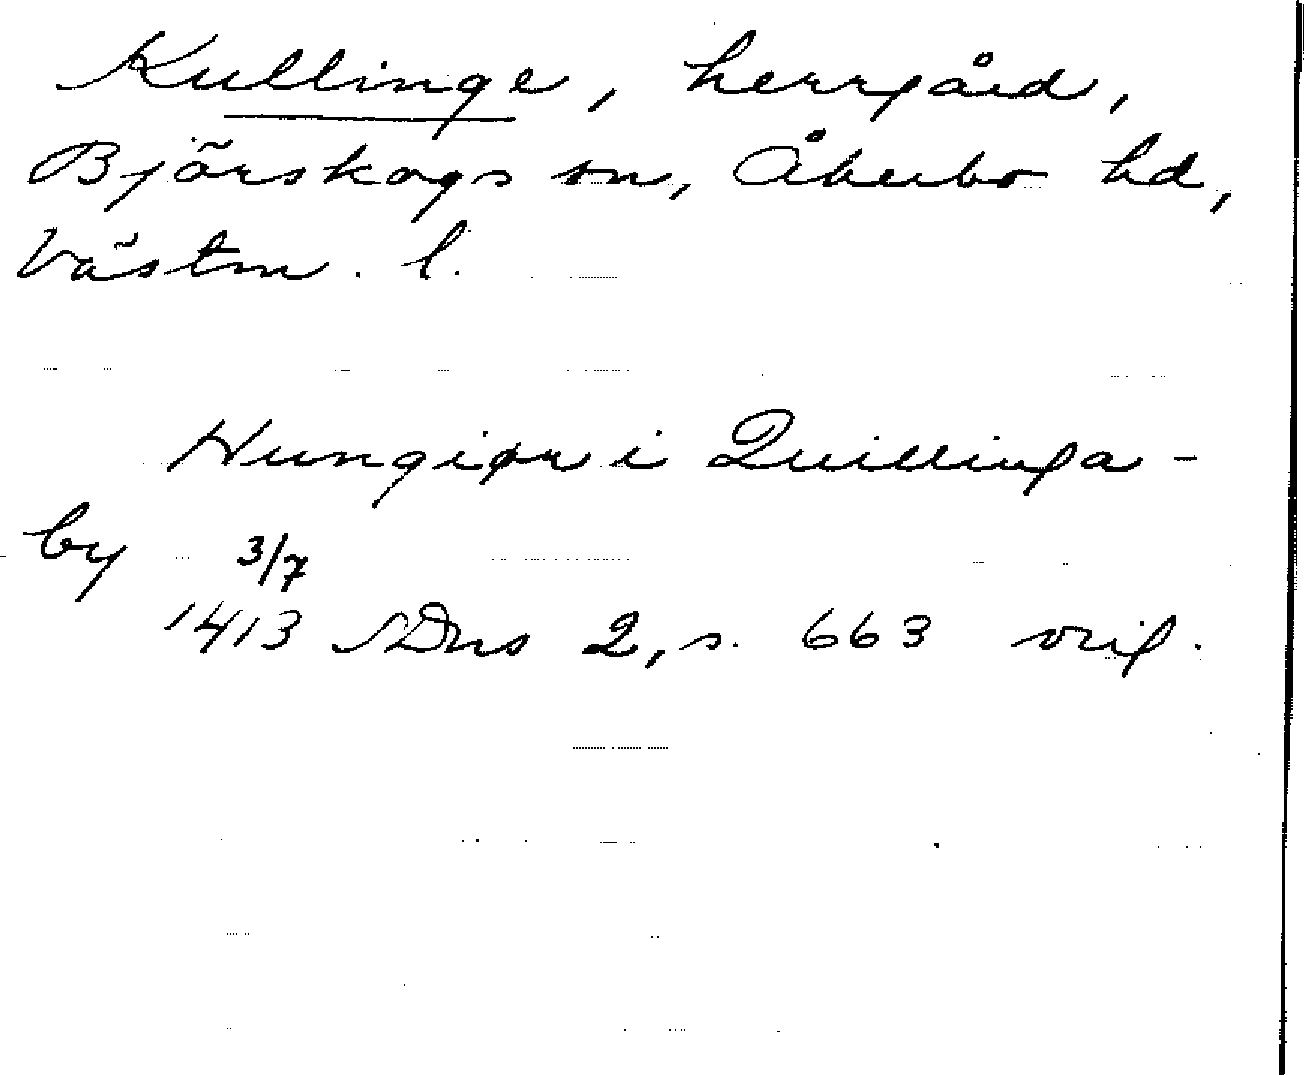 Kullinge, herrgård,
Björskogs sn, Åkerbo hd,
Västm. l.
i Quillinga-
by 3/7
1413 SDns 2, s. 663 orig.